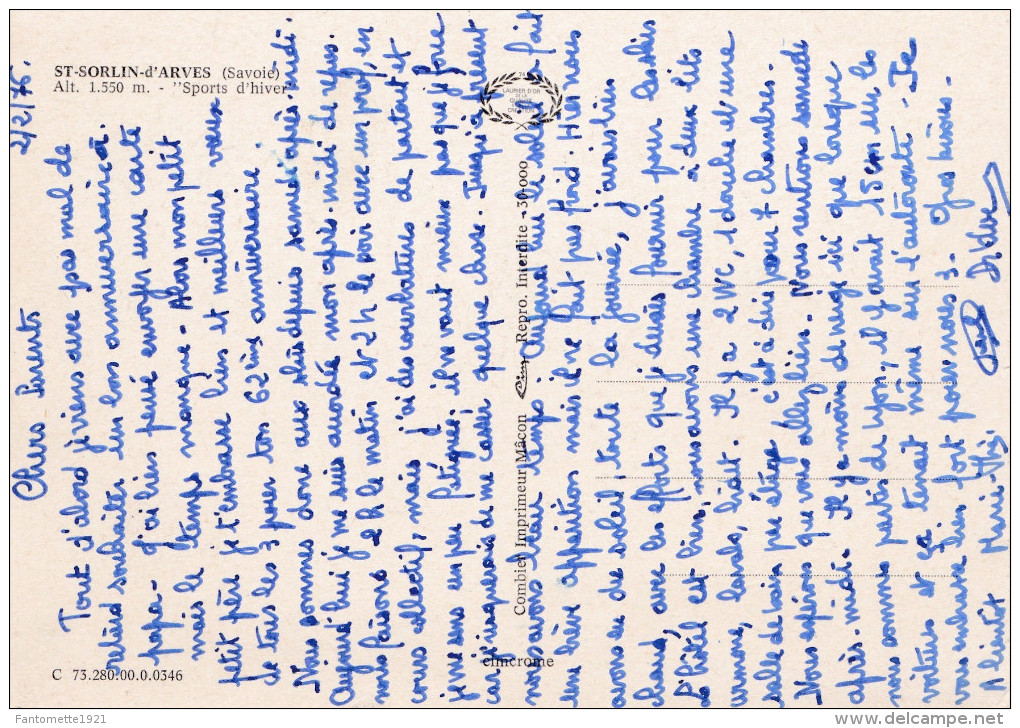 ST-SORLIN-d'ARVES (Savoie)
Alt. 1.550 m. - "Sports d'hiver"
LAURIER D'OR
DE LA
QUALITÉ
Combier Imprimeur Mâcon Cim Repro. Interdite - 30.000
cimcrome
C 73.280.00.0.0346
2/2/75.
Chers Parents
Tout d'abord je viens avec pas mal de
retard souhaiter un bon anniversaire à
papa - j'ai bien pensé envoyer une carte
mais le temps manque - Alors mon petit
petit père je t'embrasse bien et meilleurs vœux
de tous les 3 pour ton 62ème anniversaire
Nous sommes donc aux skis depuis samedi après-midi.
Aujourd'hui je me suis accordé mon après-midi de repos.
nous faisons 2h le matin et 2h le soir avec un prof, en
cours collectif, mais j'ai des courbatures de partout et
je me sens un peu fatiguée il vaut mieux pas que je force
car je risquerais de me casser quelque chose. Jusqu'à
nous avons beau temps. Aujourd'hui le soleil fait
une brève apparition mais il ne fait pas froid. Hier nous
avons eu du soleil toute la journée, j'avais très
chaud avec les efforts que je devais fournir pour les skis
L'hôtel est bien, nous avons une chambre à deux lits
lavabo, bidet. Il y a 2 WC, 1 douche et une
salle de bain par étage c'est à dire pour 7 chambres.
Nous espérons que vous allez bien. Nous rentrons samedi
après-midi. Il y a moins de neige ici que lorsque
nous sommes partis de Lyon, il y avait 15 cm sur les
voitures et ça tenait même sur l'autoroute - Je
vous embrasse bien fort pour nous 3. Gros bisous.
A bientôt Marie-Thé, Didier